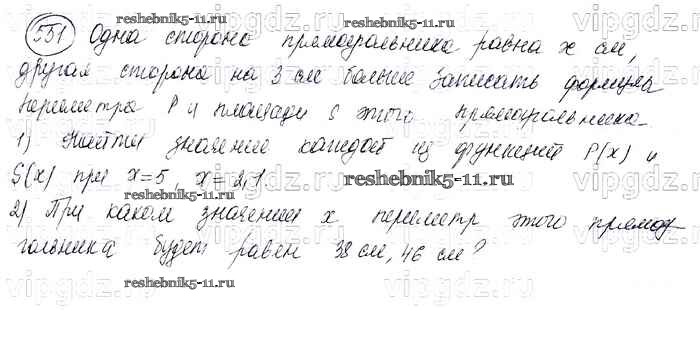 reshebnik5-11.ru
551 Одна сторона прямоугольника равна x см,
другая сторона на 3 см больше Записать формулы
периметра P и площади S этого прямоугольника.
1) Найти значение каждой из функций P(x) и
S(x) при x=5, x=2,1. reshebnik5-11.ru
2) При каком значении x периметр этого прямоу
гольника будет равен 38 см, 46 см?
reshebnik5-11.ru reshebnik5-11.ru
vipgdz.ru vipgdz.ru vipgdz.ru